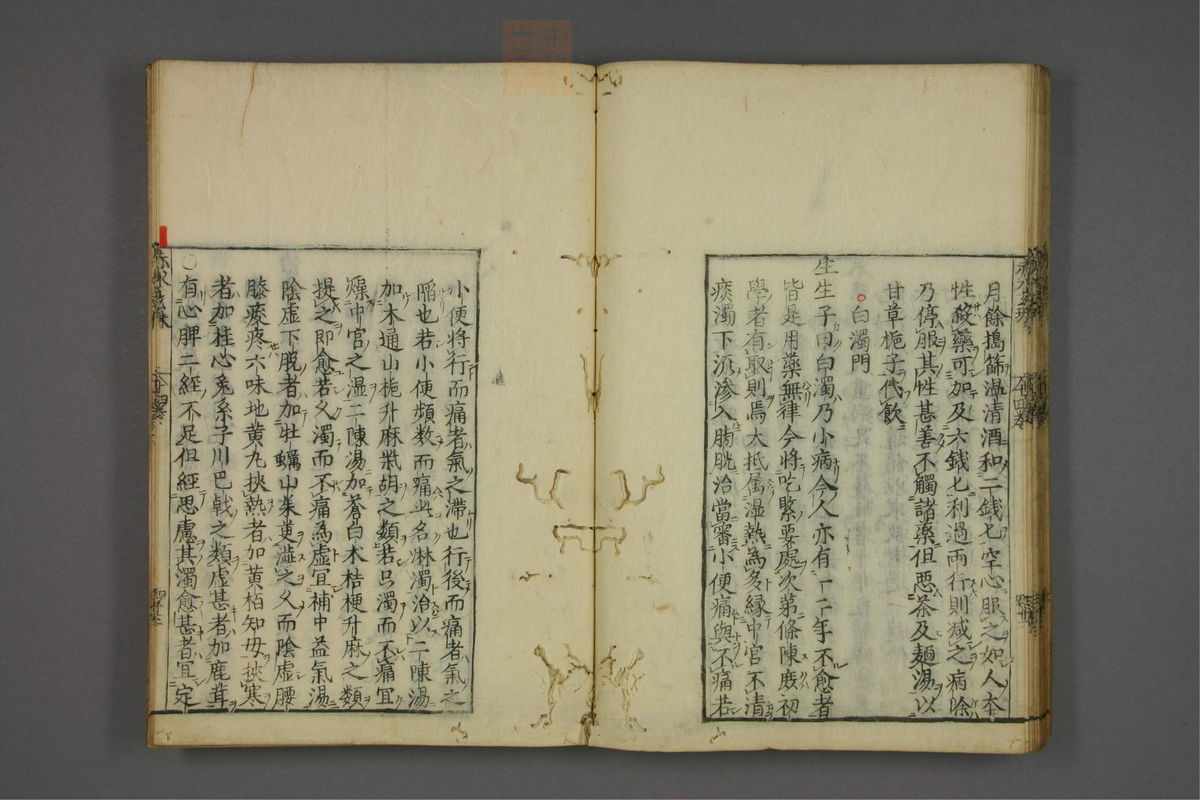 月餘搗篩温清酒和二錢匕空心服之如人本
性殺藥可加及六錢匕利過兩行則減之病除
乃停服其性甚善不觸諸藥但惡茶及麵湯以
甘草梔子代飲
○白濁門
生生子曰白濁乃小病今人亦有一二年不愈者
皆是用藥無律今將吃緊要處次第條陳庻初
學者有取則焉大抵属湿熱為多縁中官不清
痰濁下流滲入胸胱治當審小便痛與不痛若
小便將行而痛者氣之滞也行後而痛者氣之
陥也若小便頻数而痛此名淋濁治以二陳湯
加木通山梔升麻柴胡之類若只濁而不痛宜
燥中官之湿二陳湯加蒼白木桔梗升麻之類
提之即愈若久濁而不痛為虚宜補中益氣湯
陰虚下脱者加牡蠣山茱萸澁之久而陰虚腰
膝痠疼六味地黄丸挾熱者加黄栢知母挾寒
者加桂心兎糸子川巴戟之類虚甚者加鹿茸
○有心脾二經不足但經思慮其濁愈甚者宜定